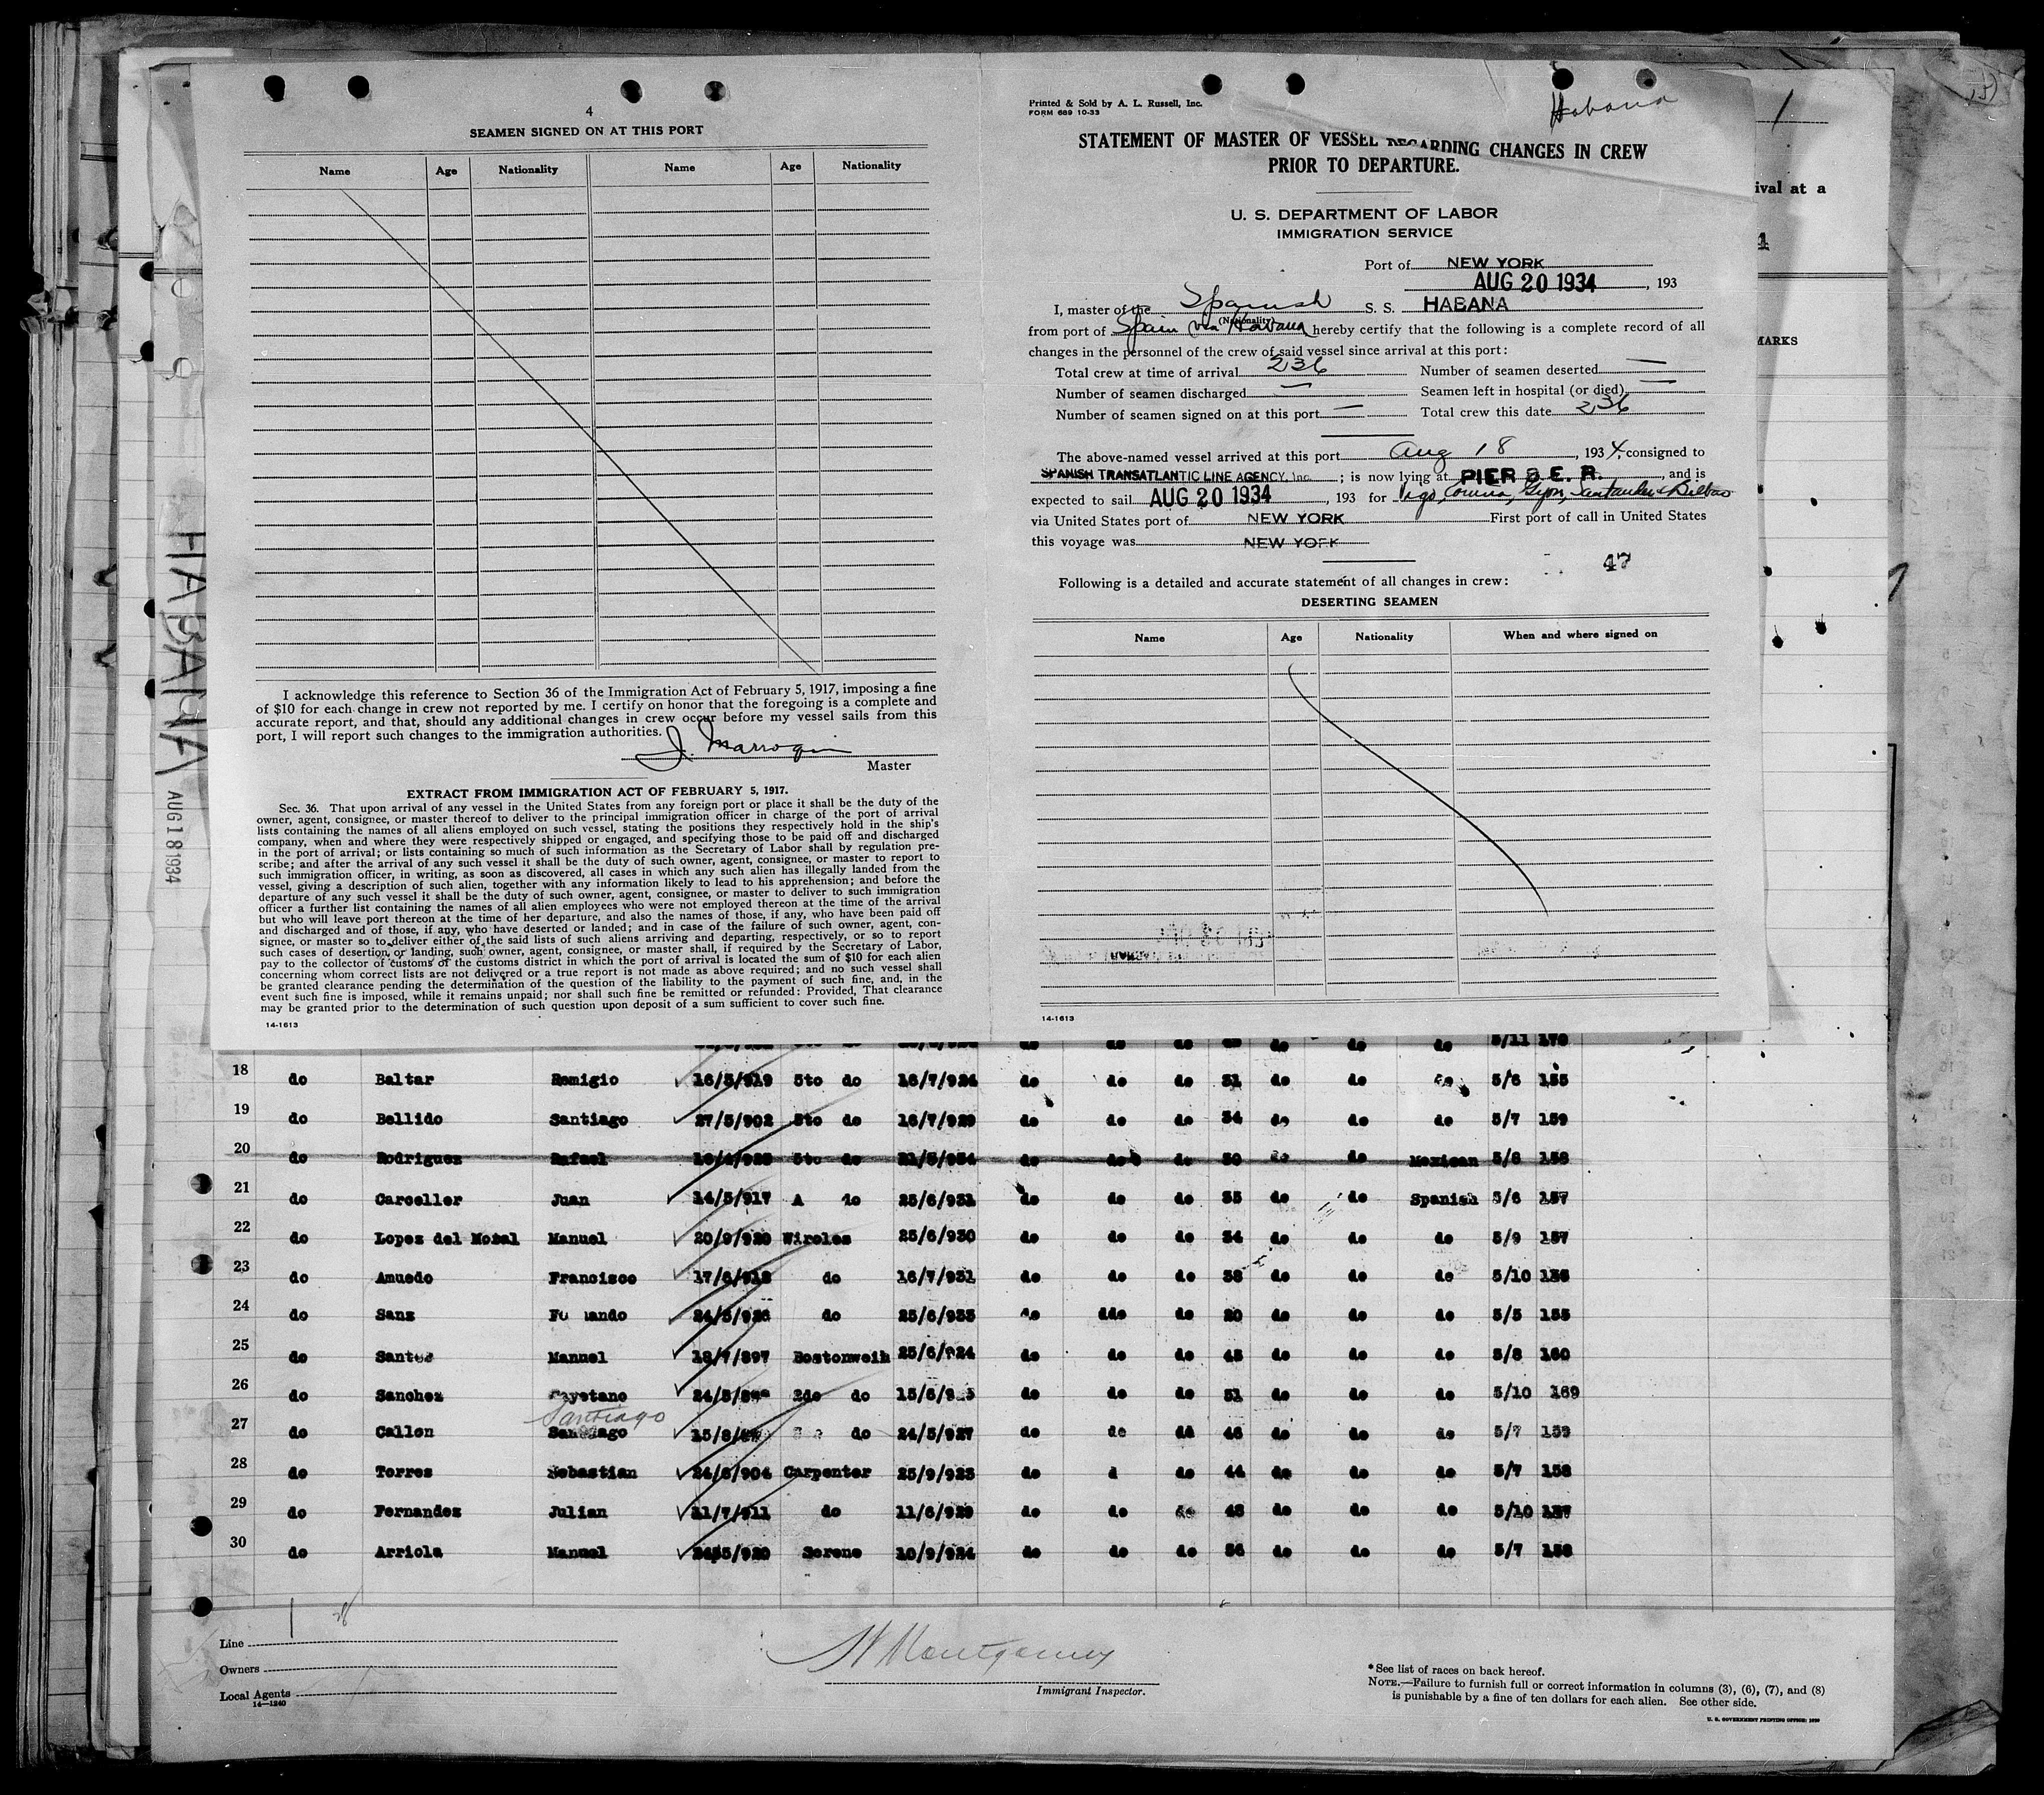 4
SEAMEN SIGNED ON AT THIS PORT
Name Age Nationality Name Age Nationality
I acknowledge this reference to Section 36 of the Immigration Act of February 5, 1917, imposing a fine
of $10 for each change in crew not reported by me. I certify on honor that the foregoing is a complete and
accurate report, and that, should any additional changes in crew occur before my vessel sails from this
port, I will report such changes to the immigration authorities.
J. Marroquin
Master
EXTRACT FROM IMMIGRATION ACT OF FEBRUARY 5, 1917.
Sec. 36. That upon arrival of any vessel in the United States from any foreign port or place it shall be the duty of the
owner, agent, consignee, or master thereof to deliver to the principal immigration officer in charge of the port of arrival
lists containing the names of all aliens employed on such vessel, stating the positions they respectively hold in the ship's
company, when and where they were respectively shipped or engaged, and specifying those to be paid off and discharged
in the port of arrival; or lists containing so much of such information as the Secretary of Labor shall by regulation pre-
scribe; and after the arrival of any such vessel it shall be the duty of such owner, agent, consignee, or master to report to
such immigration officer, in writing, as soon as discovered, all cases in which any such alien has illegally landed from the
vessel, giving a description of such alien, together with any information likely to lead to his apprehension; and before the
departure of any such vessel it shall be the duty of such owner, agent, consignee, or master to deliver to such immigration
officer a further list containing the names of all alien employees who were not employed thereon at the time of the arrival
but who will leave port thereon at the time of her departure, and also the names of those, if any, who have been paid off
and discharged and of those, if any, who have deserted or landed; and in case of the failure of such owner, agent, con-
signee, or master so to deliver either of the said lists of such aliens arriving and departing, respectively, or so to report
such cases of desertion or landing, such owner, agent, consignee, or master shall, if required by the Secretary of Labor,
pay to the collector of customs of the customs district in which the port of arrival is located the sum of $10 for each alien
concerning whom correct lists are not delivered or a true report is not made as above required; and no such vessel shall
be granted clearance pending the determination of the question of the liability to the payment of such fine, and, in the
event such fine is imposed, while it remains unpaid; nor shall such fine be remitted or refunded: Provided, That clearance
may be granted prior to the determination of such question upon deposit of a sum sufficient to cover such fine.
14-1613
Printed & Sold by A. L. Russell, Inc.
FORM 689 10-33
Habana
STATEMENT OF MASTER OF VESSEL REGARDING CHANGES IN CREW
PRIOR TO DEPARTURE.
U. S. DEPARTMENT OF LABOR
IMMIGRATION SERVICE
Port of NEW YORK
AUG 20 1934, 193
I, master of the Spanish S. S. HABANA
(Nationality)
from port of Spain via Havana hereby certify that the following is a complete record of all
changes in the personnel of the crew of said vessel since arrival at this port:
Total crew at time of arrival 236 Number of seamen deserted —
Number of seamen discharged — Seamen left in hospital (or died) —
Number of seamen signed on at this port — Total crew this date 236
The above-named vessel arrived at this port Aug 18, 1934, consigned to
SPANISH TRANSATLANTIC LINE AGENCY, Inc. ; is now lying at PIER 8 E. R., and is
expected to sail AUG 20 1934, 193 for Vigo, Coruna, Gijon, Santander & Bilbao
via United States port of NEW YORK First port of call in United States
this voyage was NEW YORK
47
Following is a detailed and accurate statement of all changes in crew:
DESERTING SEAMEN
Name Age Nationality When and where signed on
14-1613
1
ival at a
MARKS
HABANA
AUG 18 1934
do do do do do do 5/11 170
18 do Baltar Remigio 16/5/919 5to do 16/7/924 do do do 31 do do do 5/6 155
19 do Bellido Santiago 27/5/902 5to do 16/7/929 do do do 34 do do do 5/7 159
20 do Rodriguez Rafael 5to do 21/5/934 do do do 30 do do Mexican 5/8 158
21 do Carceller Juan 14/5/917 A do 25/6/931 do do do 35 do do Spanish 5/6 157
22 do Lopez del Moral Manuel 20/9/920 Wireles 25/6/930 do do do 34 do do do 5/9 157
23 do Amuedo Francisco 17/6/918 do 16/7/931 do do do 38 do do do 5/10
24 do Sanz do 25/6/933 do ddo do 20 do do do 5/5 155
25 do Santos Manuel 18/7/897 Bostonweih 25/6/924 do do do 45 do do do 5/8 160
26 do Sanchez Cayetano 2do do do do do 51 do do do 5/10 169
Santiago
27 do Callon Santiago do 24/5/927 do do do 46 do do do 5/7 159
28 do Torres Sebastian 24/6/904 Carpenter 25/9/923 do d do 44 do do do 5/7 158
29 do Fernandez Julian 11/7/911 do 11/6/929 do do do 48 do do do 5/10 157
30 do Arriola Manuel Sereno 10/9/924 do do do 36 do do do 5/7 158
Line
Owners
Local Agents
14—1240
Montgomery
Immigrant Inspector.
*See list of races on back hereof.
NOTE.—Failure to furnish full or correct information in columns (3), (6), (7), and (8)
is punishable by a fine of ten dollars for each alien. See other side.
U. S. GOVERNMENT PRINTING OFFICE: 1930